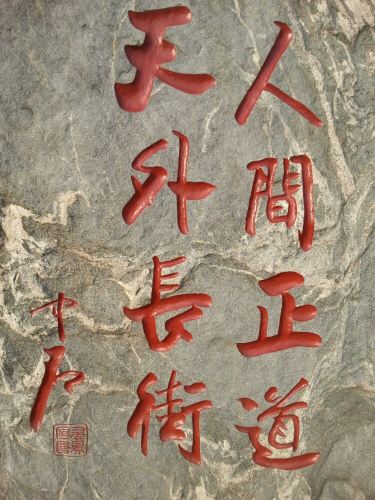 人間正道
天外長街
中石